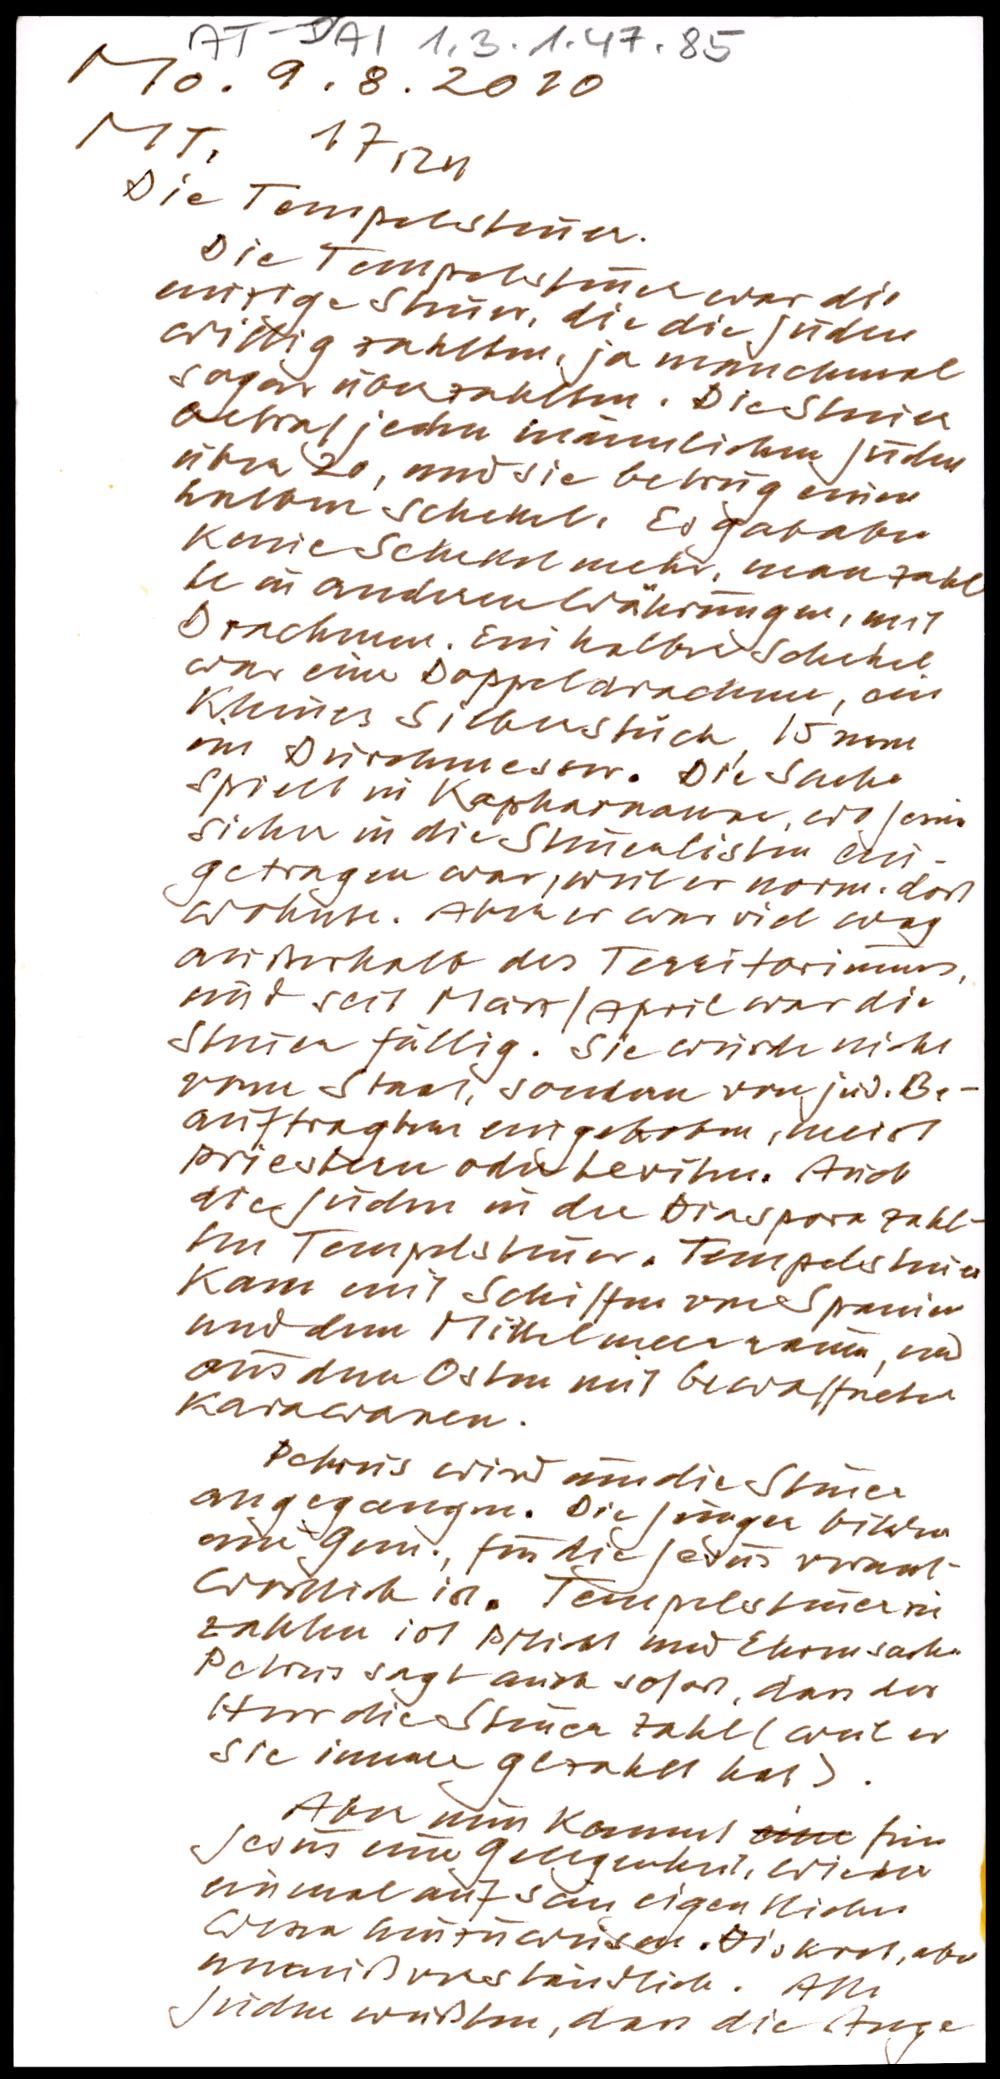 AT-DAI 1.3.1.47.85
Mo. 9.8.2010
MT. 17,24
Die Tempelsteuer.
Die Tempelsteuer war die
einzige Steuer, die die Juden
willig zahlten, ja manchmal
sogar überzahlten. Die Steuer
betraf jeden männlichen Juden
über 20, und sie betrug einen
halben Schekel. Es gab aber
keine Schekel mehr, man zahl
te in anderen Währungen, mit
Drachmen. Ein halber Schekel
war eine Doppeldrachme, ein
kleines Silberstück, 15 mm
im Durchmesser. Die Sache
spielt in Kapharnaum, wo Jesus
sicher in die Steuerlisten ein-
getragen war, weil er norm. dort
wohnte. Aber er war viel weg
außerhalb des Territoriums,
und seit März/April war die
Steuer fällig. Sie wurde nicht
vom Staat, sondern von jüd. Be-
auftragten eingehoben, meist
Priestern oder Leviten. Auch
die Juden in der Diaspora zahl-
ten Tempelsteuer. Tempelsteuer
kam mit Schiffen von Spanien
und dem Mittelmeerraum, und
aus dem Osten mit bewaffneten
Karawanen.
Petrus wird um die Steuer
angegangen. Die Jünger bilden
eine Gem., für die Jesus verant-
wortlich ist. Tempelsteuer zu
zahlen ist Pflicht und Ehrensache
Petrus sagt auch sofort, dass der
Herr die Steuer zahlt (weil er
sie immer gezahlt hat).
Aber nun kommt eine für
Jesus eine Gelegenheit, wieder
einmal auf sein eigentliches
Wesen hinzuweisen. Diskret, aber
unmißverständlich. Alle
Juden wußten, dass die Ange